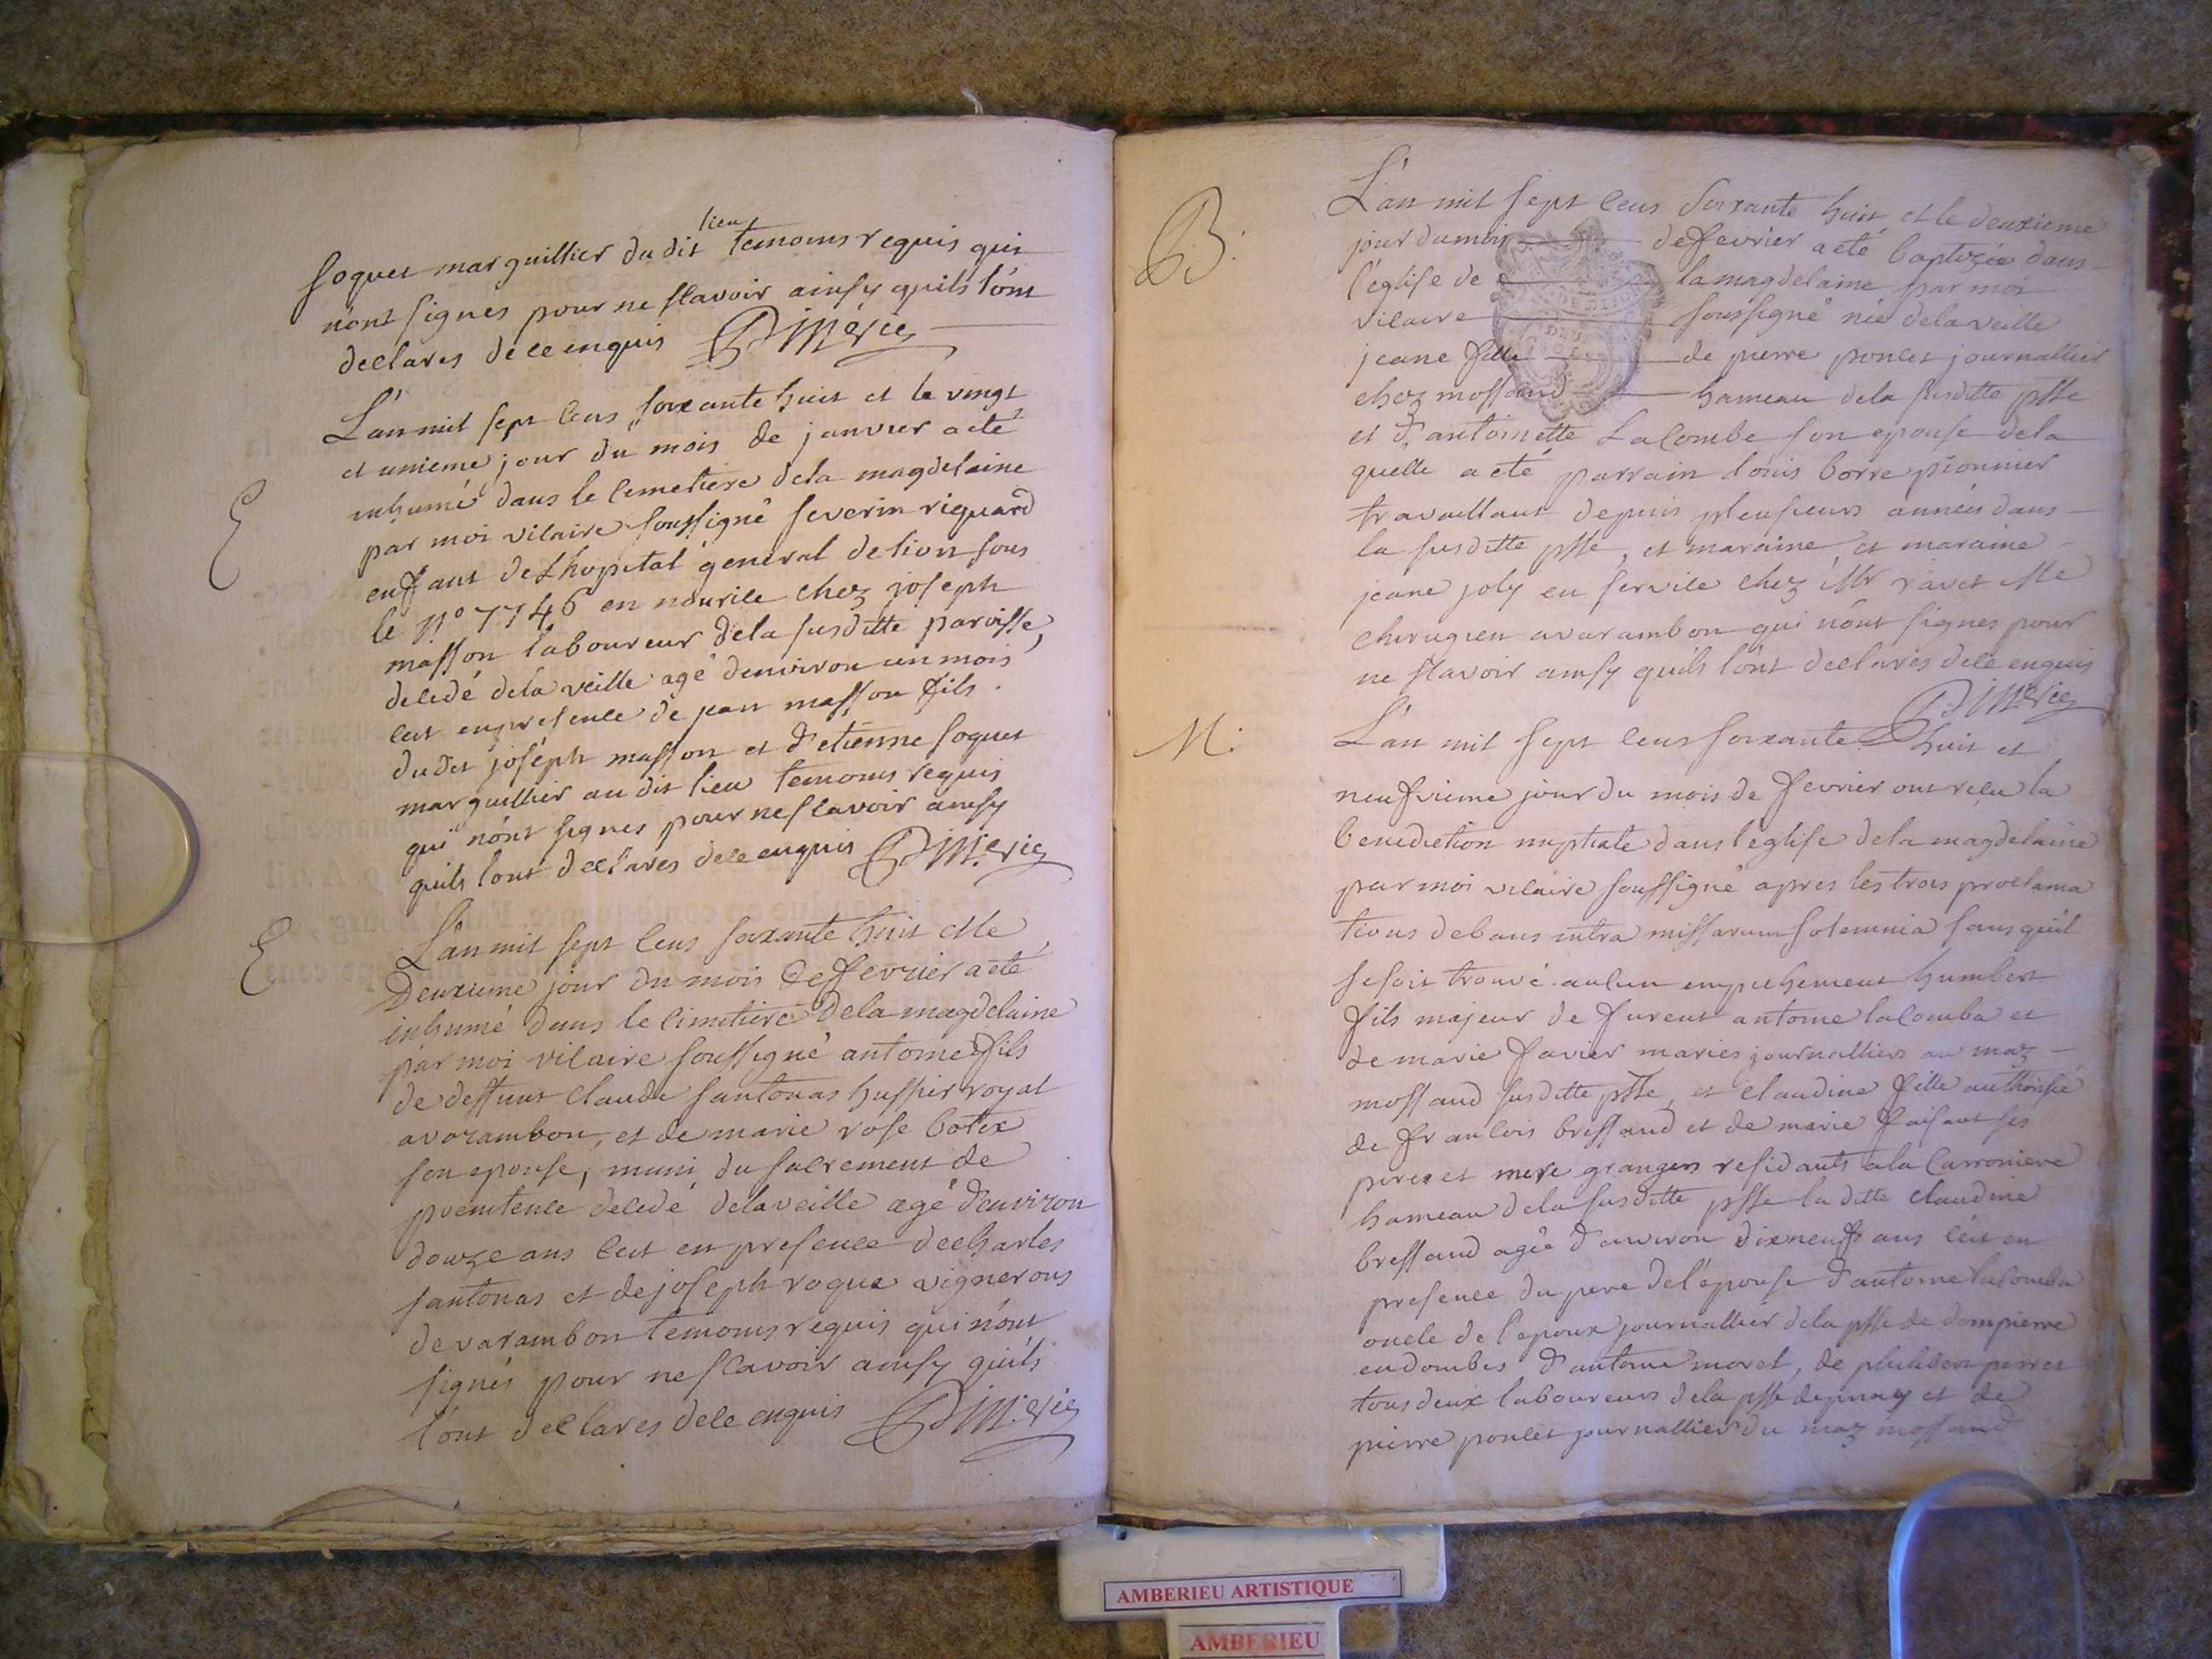 lieu
soquet marguillier du dit temoins requis qui
n'ont signes pour ne scavoir ainsy quils l'ont
declares de ce enquis DiMeric
L'an mil sept cens soixante huit et le vingt
et unieme jour du mois de janvier a eté
E
inhumé dans le cemetiere dela magdelaine
par moi vicaire soussigné severin riguard
enffant de L'hopital general de lion sous
le N° 7746 en nourice chez joseph
masson laboureur dela susditte paroisse,
decedé dela veille agé d'environ un mois
cut en presence de jean masson fils
dudit joseph masson et d'etienne soquet
marguillier au dit lieu temoins requis
qui n'ont signes pour ne scavoir ainsy
quils l'ont declares de ce enquis DiMeric
E
L'an mil sept cens soixante huit et le
Deuxieme jour du mois de ffevrier a eté
inhumé dans le cimetiere dela magdelaine
par moi vicaire soussigné antoine fils
de deffunt Claude santonas hussier royal
a varambon, et de marie rose botex
son epouse, muni du sacrement de
poenitence decedé delaveille agé d'environ
douze ans cut en presence de charles
santonas et de joseph roque vignerons
de varambon temoins requis qui n'ont
signés pour ne scavoir ainsy quils
l'ont declares de ce enquis DiMeric
B:
L'an mil sept cens soixante huit et le deuxieme
jour du mois de fevrier a eté baptizée dans
l'eglise de la magdelaine par moi
vicaire soussigné née dela veille
jeane fille de pierre poncet journallier
chez mossand hameau dela susditte psse
et d'antoinette Lacombe son epouse dela
quelle a eté parrain louis borre pionnier
travaillant depuis pleusieurs années dans
la susditte psse, et maraine, et maraine
jeane joly en service chez Mr ravet Me
chirugien a varambon qui n'ont signes pour
ne scavoir ainsy quils l'ont declarés de ce enquis
DiMeric
M:
L'an mil sept cens soixante huit et
neufvieme jour du mois de fevrier ont reçu la
benediction nuptiale dans l'eglise dela magdelaine
par moi vicaire soussigné apres les trois proclama
tions de bans intra missarum solemnia sans quil
se soit trouvé aucun empechement humbert
fils majeur de furent antoine lacomba et
de marie favier maries journalliers au maz
mossand susditte psse, et claudine fille authorisée
de francois bressand et de marie faisant ses
pere et mere grangers residants a la Carroniere
hameau dela susditte psse la ditte claudine
bressand agée d'environ dixneuf ans c'eut en
presence du pere de l'epouse d'antoine lacomba
oncle de l'epoux journallier dela psse de dompierre
en dombes d'antoine morel, de philibert perret
tous deux laboureurs dela psse de priay et de
pierre poncet journallier du maz mossand
AMBERIEU ARTISTIQUE
AMBERIEU